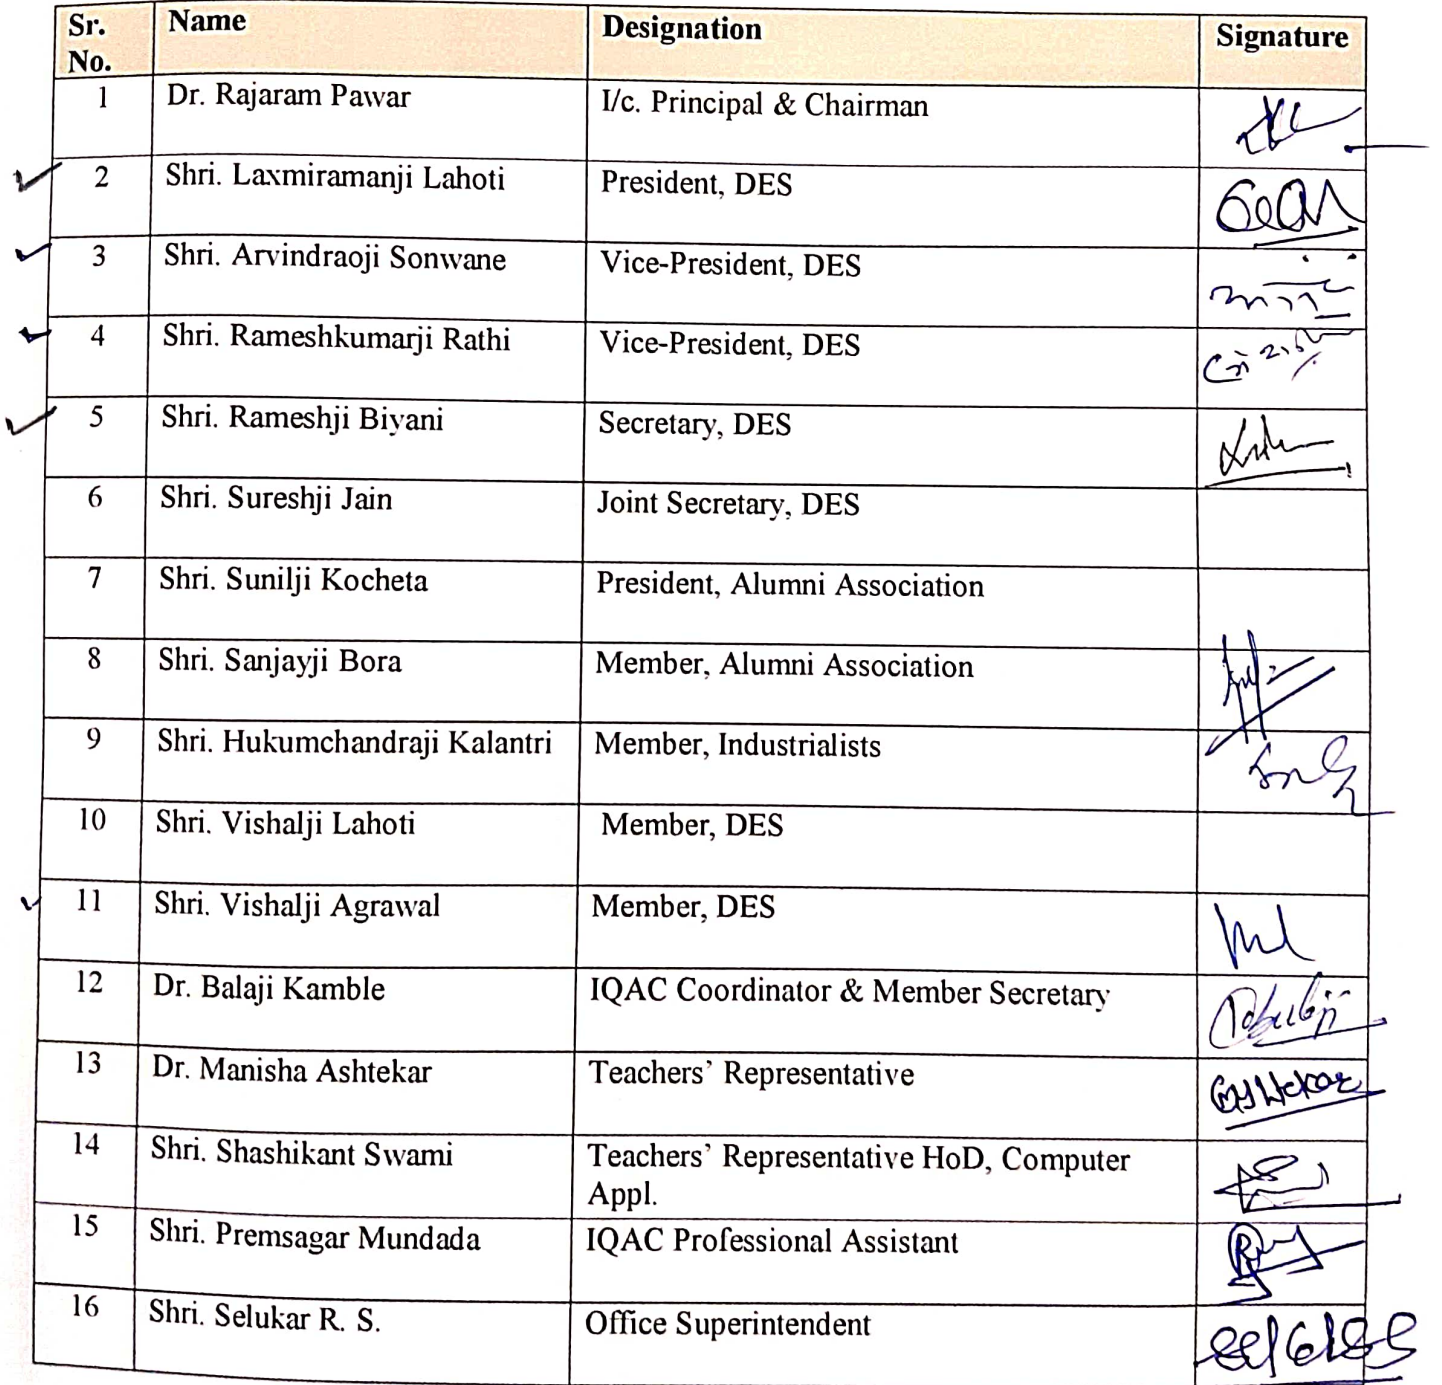 Sr. No. Name Designation Signature
1 Dr. Rajaram Pawar I/c. Principal & Chairman
2 Shri. Laxmiramanji Lahoti President, DES
3 Shri. Arvindraoji Sonwane Vice-President, DES
4 Shri. Rameshkumarji Rathi Vice-President, DES
5 Shri. Rameshji Biyani Secretary, DES
6 Shri. Sureshji Jain Joint Secretary, DES
7 Shri. Sunilji Kocheta President, Alumni Association
8 Shri. Sanjayji Bora Member, Alumni Association
9 Shri. Hukumchandraji Kalantri Member, Industrialists
10 Shri. Vishalji Lahoti Member, DES
11 Shri. Vishalji Agrawal Member, DES
12 Dr. Balaji Kamble IQAC Coordinator & Member Secretary
13 Dr. Manisha Ashtekar Teachers' Representative
14 Shri. Shashikant Swami Teachers' Representative HoD, Computer
Appl.
15 Shri. Premsagar Mundada IQAC Professional Assistant
16 Shri. Selukar R. S. Office Superintendent